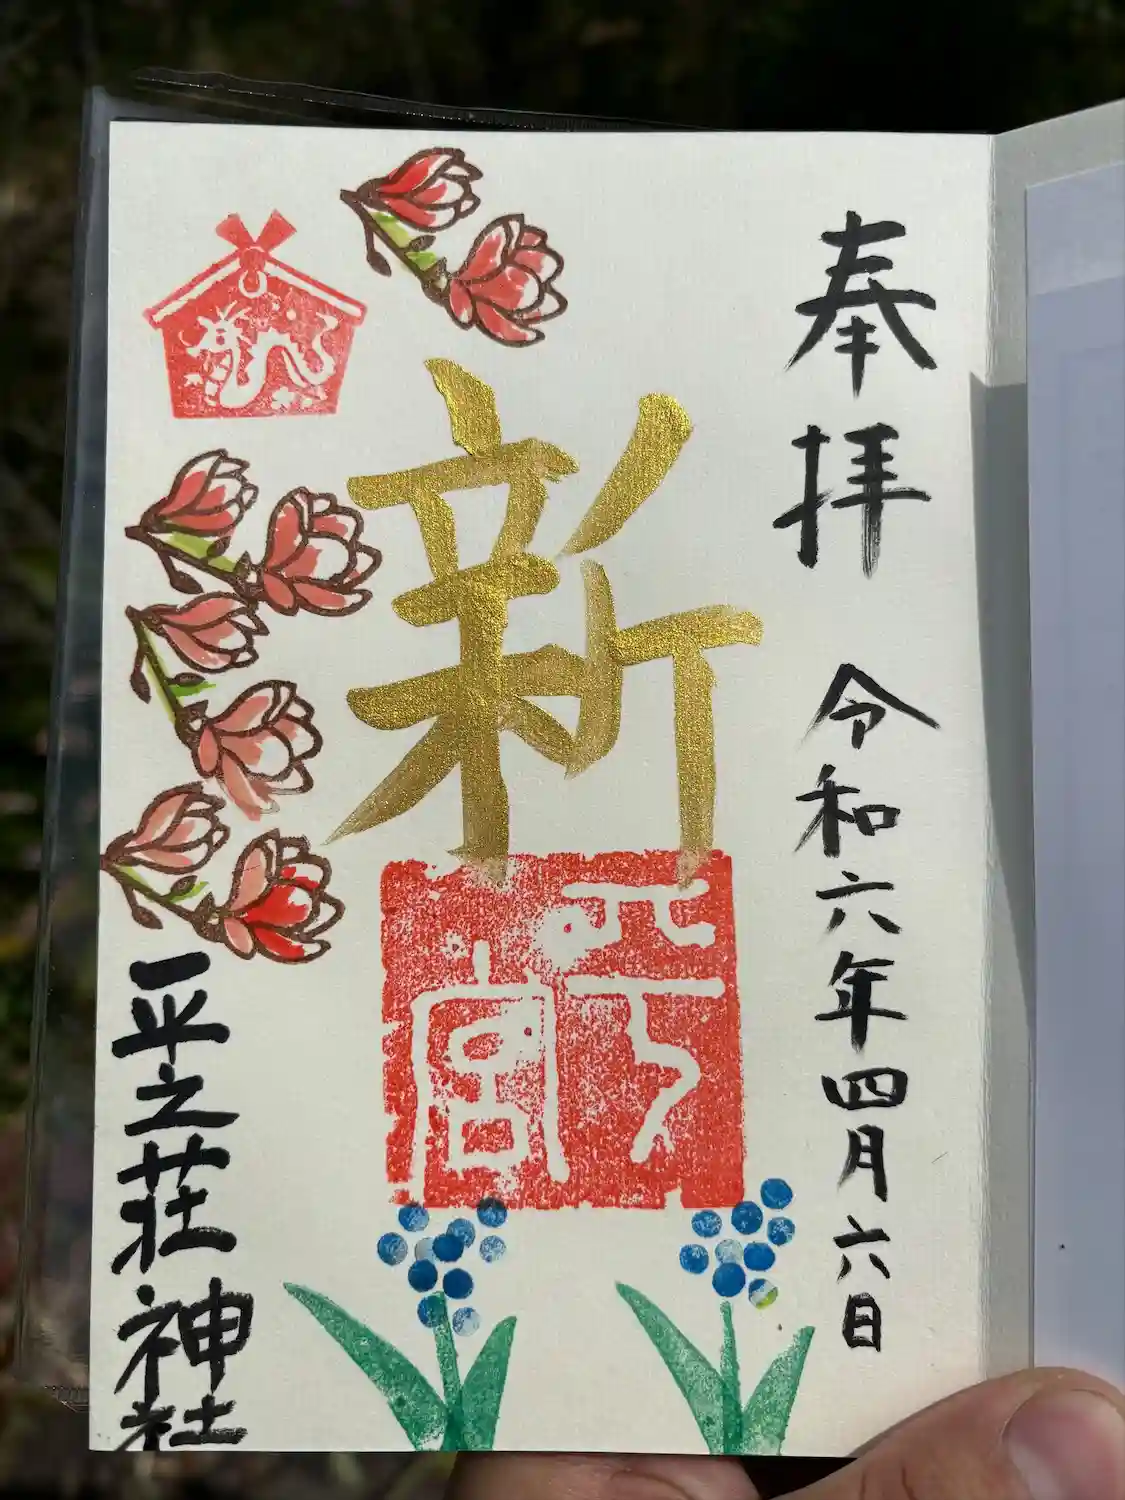 奉拝
令和六年四月六日
新
平之荘神社